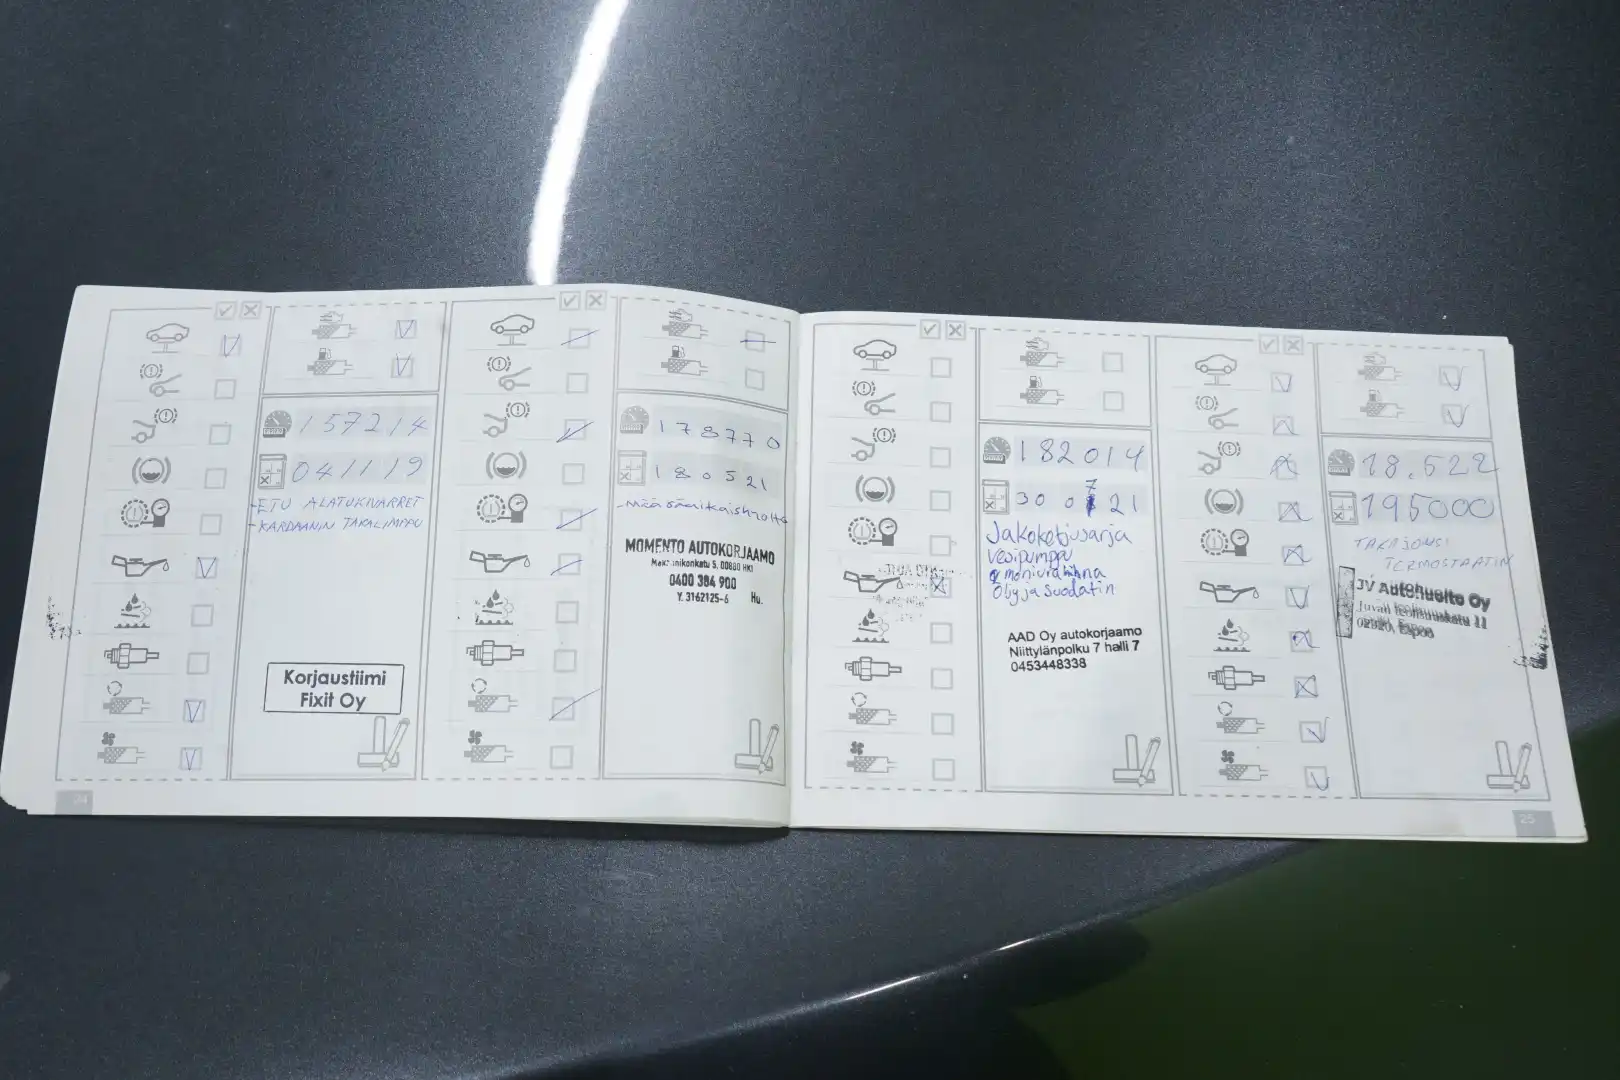 157214
041119
-ETU ALATUKIVARRET
-KARDAANIN TAKALIMPPU
Korjaustiimi
Fixit Oy
24
178770
180521
-Määräaikaishuolto
MOMENTO AUTOKORJAAMO
5, 00880 HKI
0400 384 900
Y. 3162125-6
182014
30 07 21
Jakoketjusarja
Vesipumppu
moniurahihna
Öljy ja Suodatin
AAD Oy autokorjaamo
Niittylänpolku 7 halli 7
0453448338
18.522
195000
TAKAJOUSI
TERMOSTAATIN
JV Autohuolto Oy
Juvan teollisuuskatu 11
02920, Espoo
25